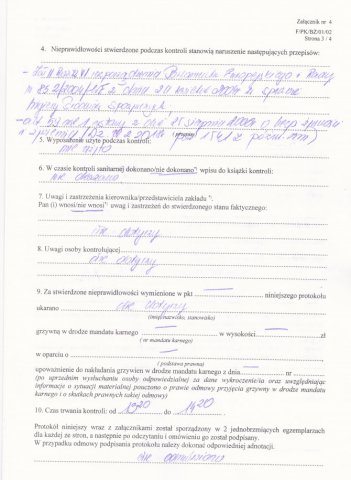 Załącznik nr 4
F/PK/BŻ/01/02
Strona 3 / 4
4. Nieprawidłowości stwierdzone podczas kontroli stanowią naruszenie następujących przepisów:
Parlamentu Europejskiego i Rady
w sprawie
higieny środków spożywczych,
(przepisy)
5. Wyposażenie użyte podczas kontroli:
nie użyto
6. W czasie kontroli sanitarnej dokonano/nie dokonano*) wpisu do książki kontroli:
nie dokonano
7. Uwagi i zastrzeżenia kierownika/przedstawiciela zakładu *):
Pan (i) wnosi/nie wnosi*) uwag i zastrzeżeń do stwierdzonego stanu faktycznego:
nie dotyczy
8. Uwagi osoby kontrolującej
nie dotyczy
9. Za stwierdzone nieprawidłowości wymienione w pkt niniejszego protokołu
ukarano nie dotyczy
(imię/nazwisko, stanowisko)
grzywną w drodze mandatu karnego w wysokości zł
( nr mandatu karnego)
w oparciu o
( podstawa prawna)
upoważnienie do nakładania grzywien w drodze mandatu karnego z dnia nr
(po uprzednim wysłuchaniu osoby odpowiedzialnej za dane wykroczenie/a oraz uwzględniając
informacje o sytuacji materialnej pouczono o prawie odmowy przyjęcia grzywny w drodze mandatu
karnego i o skutkach prawnych takiej odmowy)
10. Czas trwania kontroli: od 13 20 do 14 20.
Protokół niniejszy wraz z załącznikami został sporządzony w 2 jednobrzmiących egzemplarzach
dla każdej ze stron, a następnie po odczytaniu i omówieniu go został podpisany.
W przypadku odmowy podpisania protokołu należy dokonać odpowiedniej adnotacji.
nie odmówiono